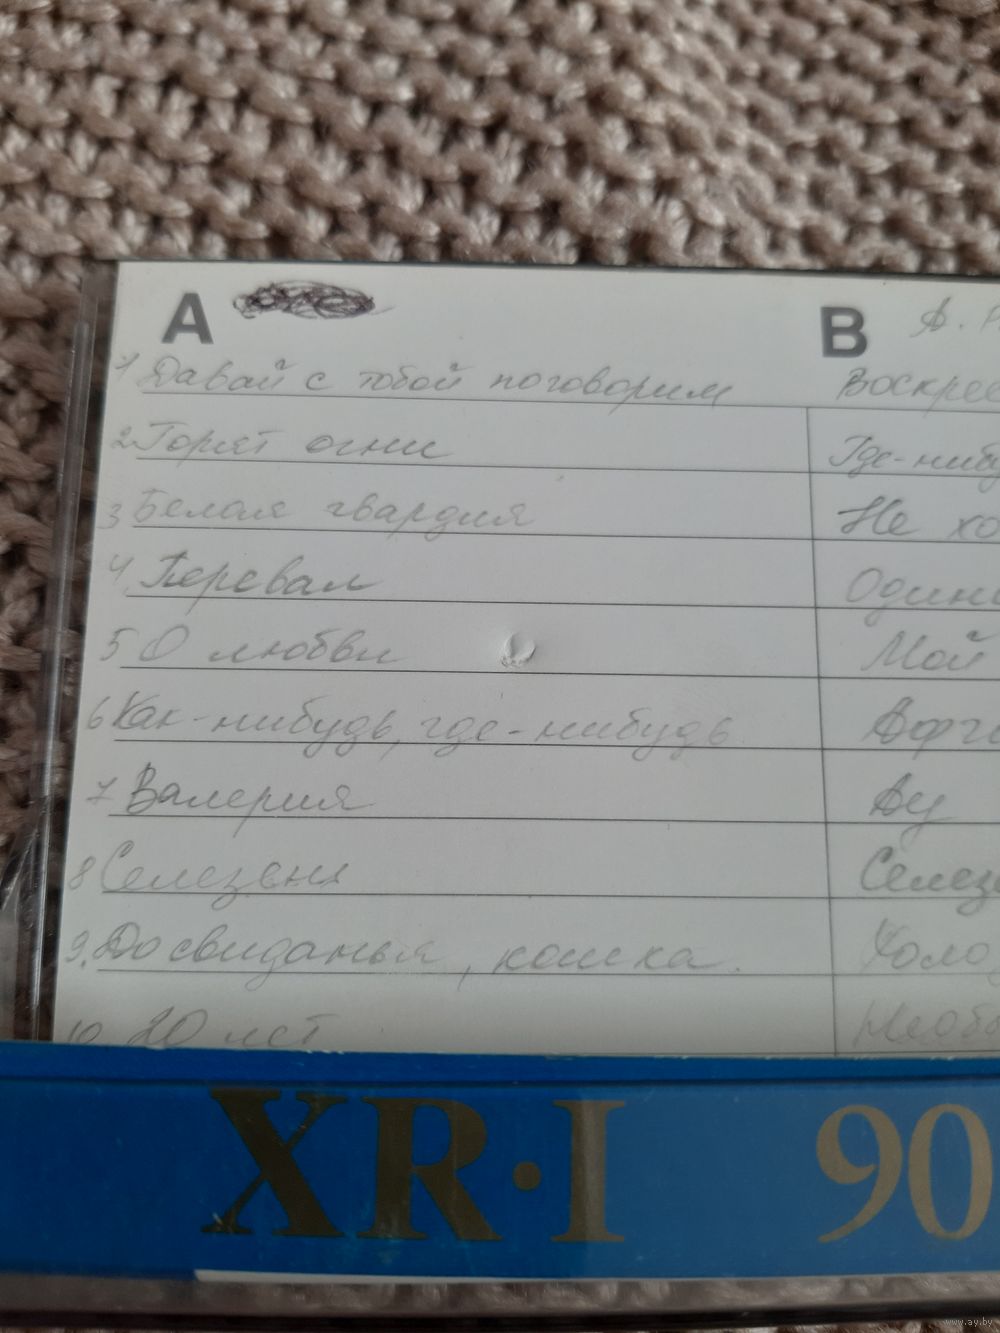 A
B А. Р
1 Давай с тобой поговорим
2. Горят огни
3 Белая гвардия
4. Перевал
5 О любви
6 Как-нибудь, где-нибудь
7 Валерия
8 Селезень
9. До свиданья, кошка.
10 20 лет
Воскрес
Где-нибу
Не хо
Один
Мой
Афга
Ау
Селез
Холо
Необ
XR·I 90
www.ay.by